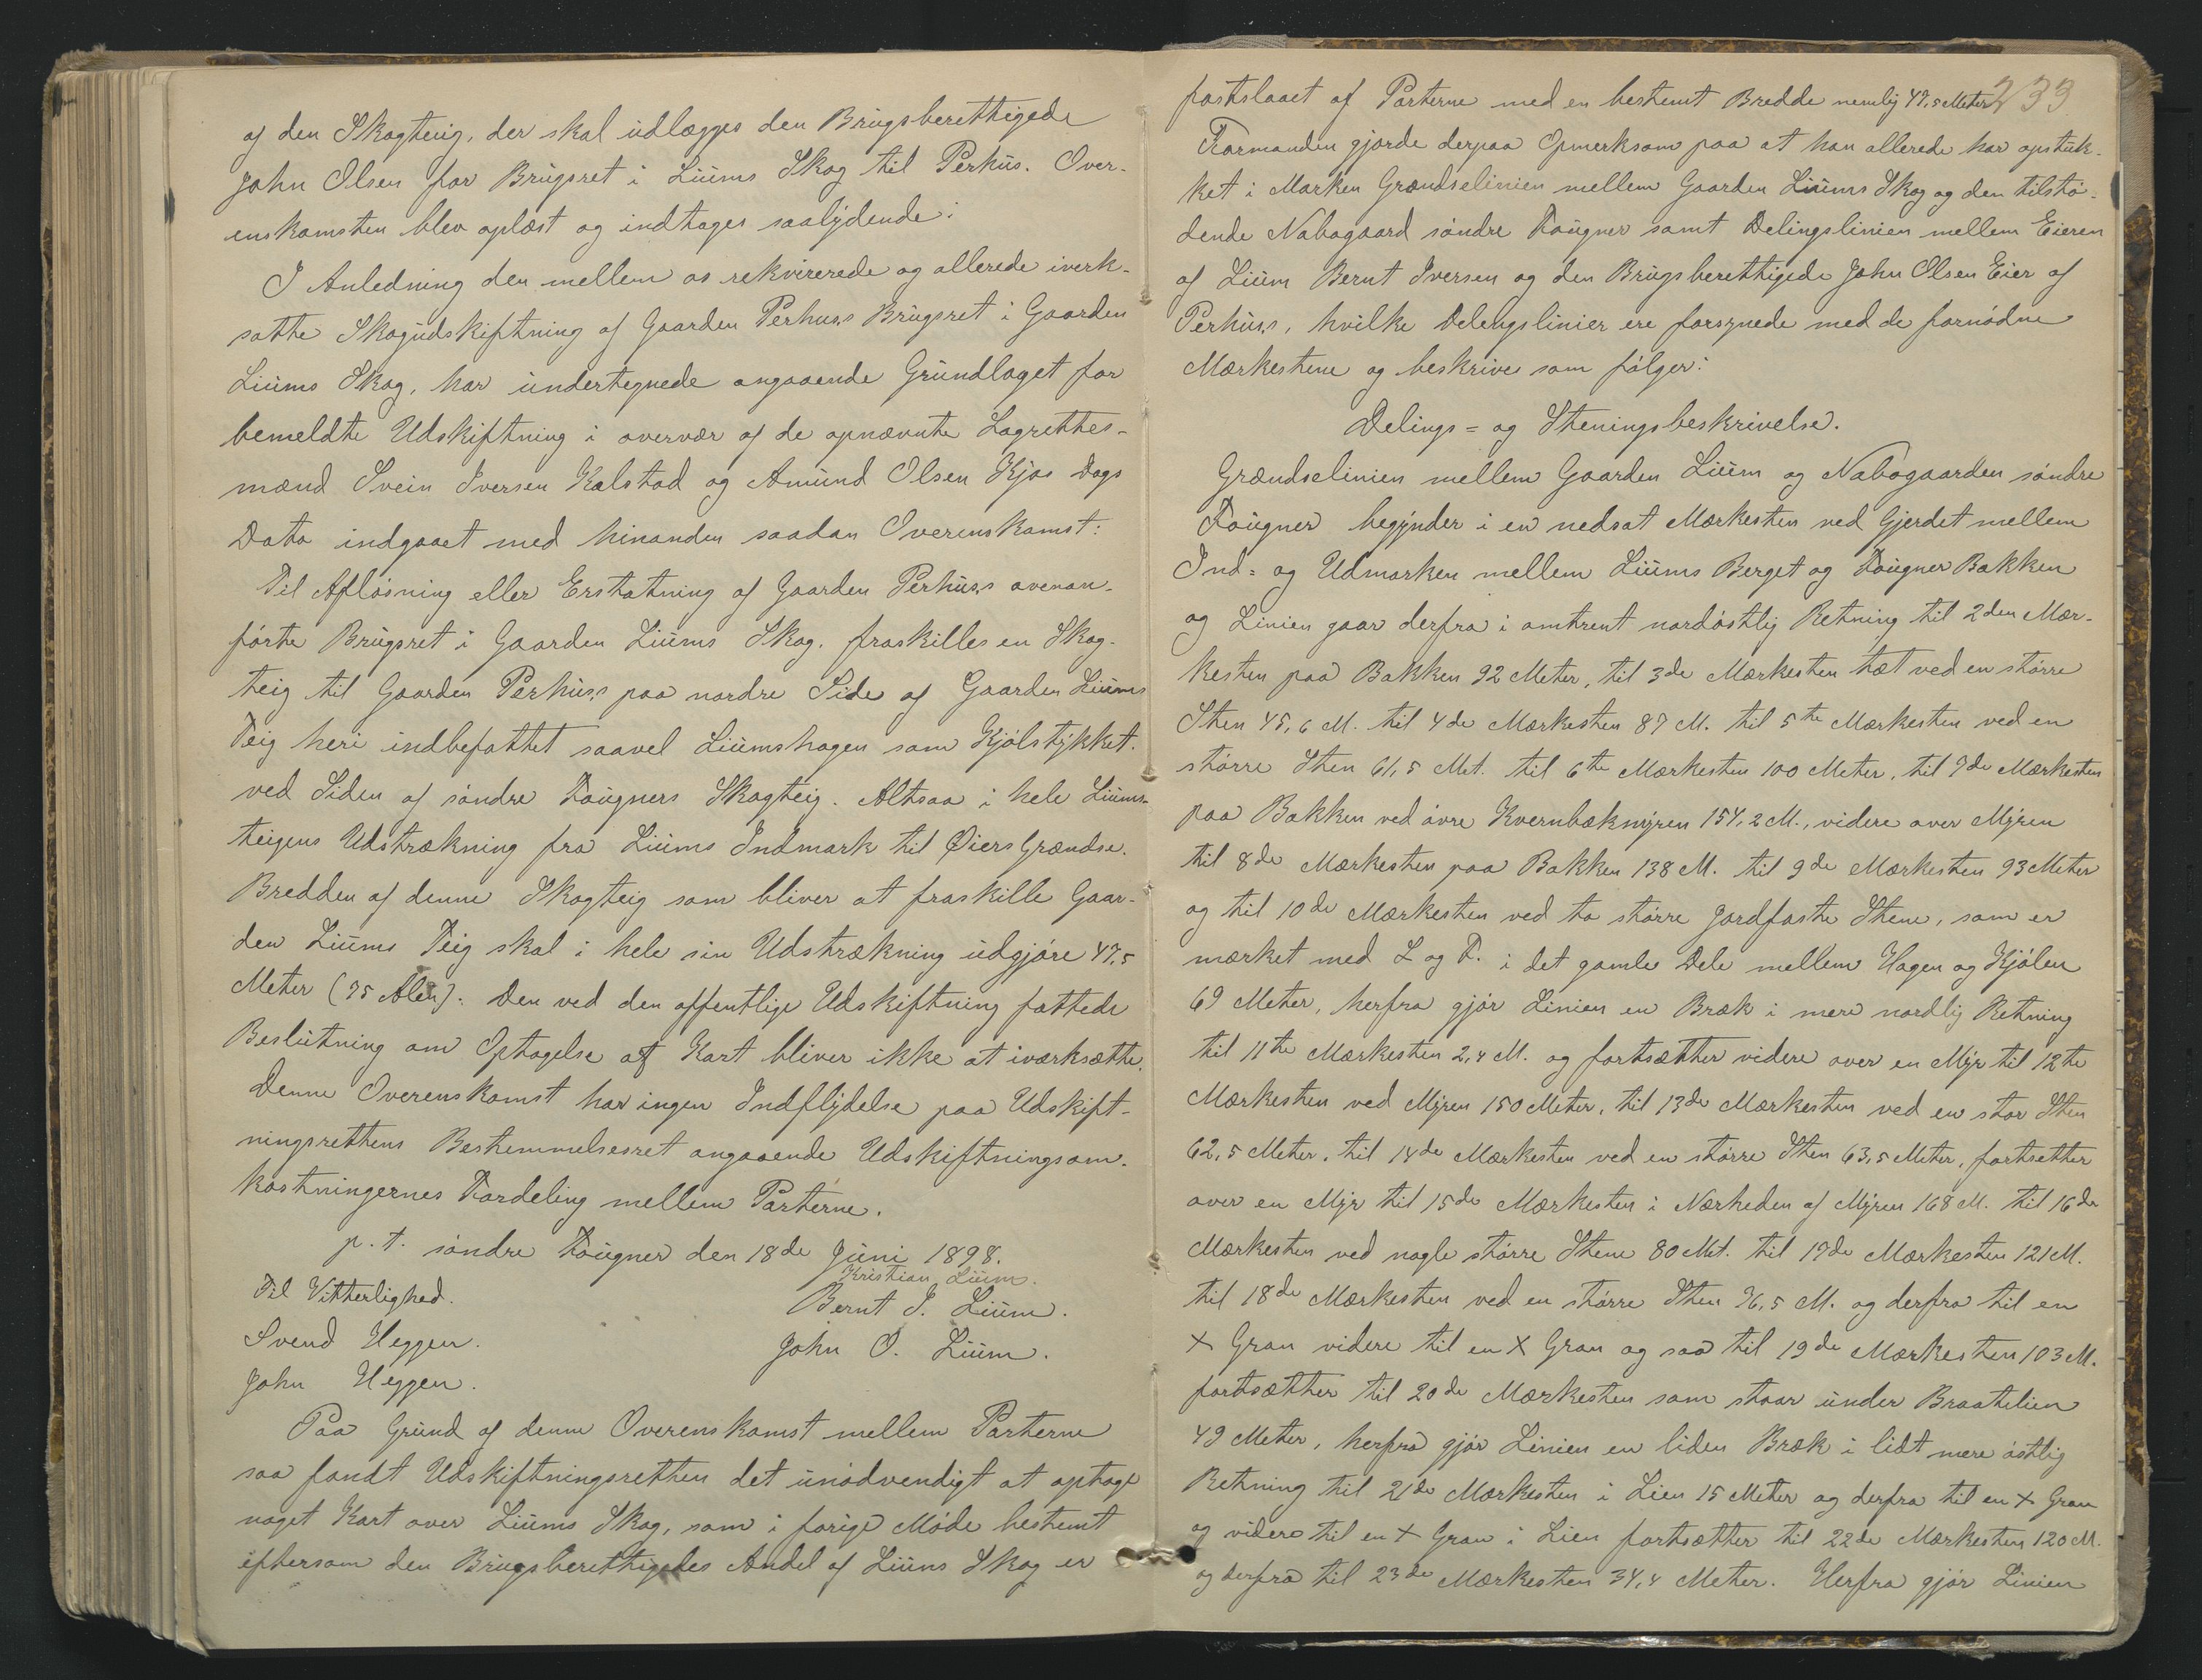 af den Skogteig, der skal udlægges den Brugsberettigede
John Olsen for Brugsret i Liums Skog til Perhus. Over-
enskomsten blev oplæst og indtages saalydende:
I Anledning den mellem os rekvirerede og allerede iverk-
satte Skogudskiftning af Gaarden Perhus's Brugsret i Gaarden
Liums Skog, har undertegnede angaaende Grundlaget for
bemeldte Udskiftning i overvær af de opnævnte Lagrettes-
mænd Svein Iversen Kalstad og Amund Olsen Kjos Dags
Dato indgaaet med hinanden saadan Overenskomst:
Til Afløsning eller Erstatning af Gaarden Perhus's ovenan-
førte Brugsret i Gaarden Liums Skog. fraskilles en Skog-
teig til Gaarden Perhus's paa nordre Side af Gaarden Liums
Teig heri indbefattet saavel Liumshagen som Kjølstykket.
ved Siden af søndre Fougners Skogteig. Altsaa i hele Liums-
teigens Udstrækning fra Liums Indmark til Øiers Grændse.
Bredden af denne Skogteig som bliver at fraskille Gaar-
den Liums Teig skal i hele sin Udstrækning udgjøre 47,5
Meter (75 Alen). Den ved den offentlige Udskiftning fattede
Beslutning om Optagelse af Kart bliver ikke at iværksætte.
Denne Overenskomst har ingen Indflydelse paa Udskift-
ningsrettens Bestemmelsesret angaaende Udskiftningsom-
kostningernes Fordeling mellem Parterne.
p. t. søndre Fougner den 18de Juni 1898.
Kristian Lium.
Til Vitterlighed. Bernt I. Lium.
Svend Heggen. John O. Lium.
John Heggen.
Paa Grund af denne Overenskomst mellem Parterne
saa fandt Udskiftningsretten det unødvendigt at optage
noget Kart over Liums Skog, som i forige Møde bestemt
eftersom den Brugsberettigedes Andel af Liums Skog er
233
fastslaaet af Parterne med en bestemt Bredde nemlig 47,5 Meter
Formanden gjorde derpaa Opmerksom paa at han allerede har opstuk-
ket i Marken Grændselinien mellem Gaarden Liums Skog og den tilstø-
dende Nabogaard søndre Fougner samt Delingslinien mellem Eieren
af Lium Bernt Iversen og den Brugsberettigede John Olsen Eier af
Perhus's, hvilke Delengslinier ere forsynede med de fornødne
Mærkestene og beskrives som følger:
Delings= og Steningsbeskrivelse.
Grændselinien mellem Gaarden Lium og Nabogaarden søndre
Fougner begynder i en nedsat Mærkesten ved Gjerdet mellem
Ind= og Udmarken mellem Liums Berget og Fougner Bakken
og Linien gaar derfra i omtrent nordøstlig Retning til 2den Mær-
kesten paa Bakken 92 Meter, til 3de Mærkesten tæt ved en større
Sten 45,6 M. til 4de Mærkesten 87 M. til 5te Mærkesten ved en
større Sten 61,5 Met. til 6te Mærkesten 100 Meter, til 7de Mærkesten
paa Bakken ved øvre Kvernbækmyren 154,2 M., videre over Myren
til 8de Mærkesten paa Bakken 138 M. til 9de Mærkesten 93 Meter
og til 10de Mærkesten ved to større Jordfaste Stene, som er
mærket med L og F. i det gamle Dele mellem Hagen og Kjølen
69 Meter, herfra gjør Linien en Bræk i mere nordlig Retning
til 11te Mærkesten 2,4 M. og fortsætter videre over en Myr til 12te
Mærkesten ved Myren 150 Meter, til 13de Mærkesten ved en stor Sten
62,5 Meter, til 14de Mærkesten ved en større Sten 63,5 Meter, fortsetter
over en Myr til 15de Mærkesten i Nærheden af Myren 168 M. til 16de
Mærkesten ved nogle større Stene 80 Met. til 17de Mærkesten 121 M.
til 18de Mærkesten ved en større Sten 76,5 M. og derfra til en
X Gran videre til en X Gran og saa til 19de Mærkesten 103 M.
fortsætter til 20de Mærkesten som staar under Braatelien
49 Meter, herfra gjør Linien en liden Bræk i lidt mere østlig
Retning til 21de Mærkesten i Lien 15 Meter og derfra til en X Gran
og videre til en X Gran i Lien fortsætter til 22de Mærkesten 120 M.
og derfra til 23de Mærkesten 34,4 Meter. Herfra gjør Linien